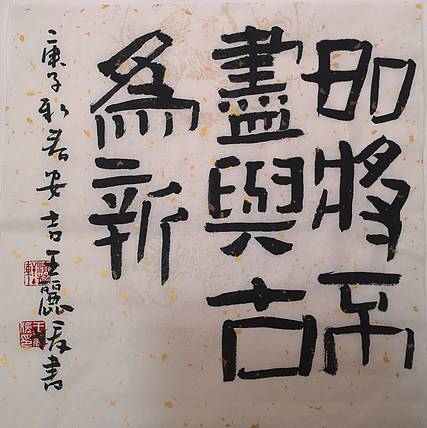 如將不
盡與古
為新
庚子 安吉王麗 書